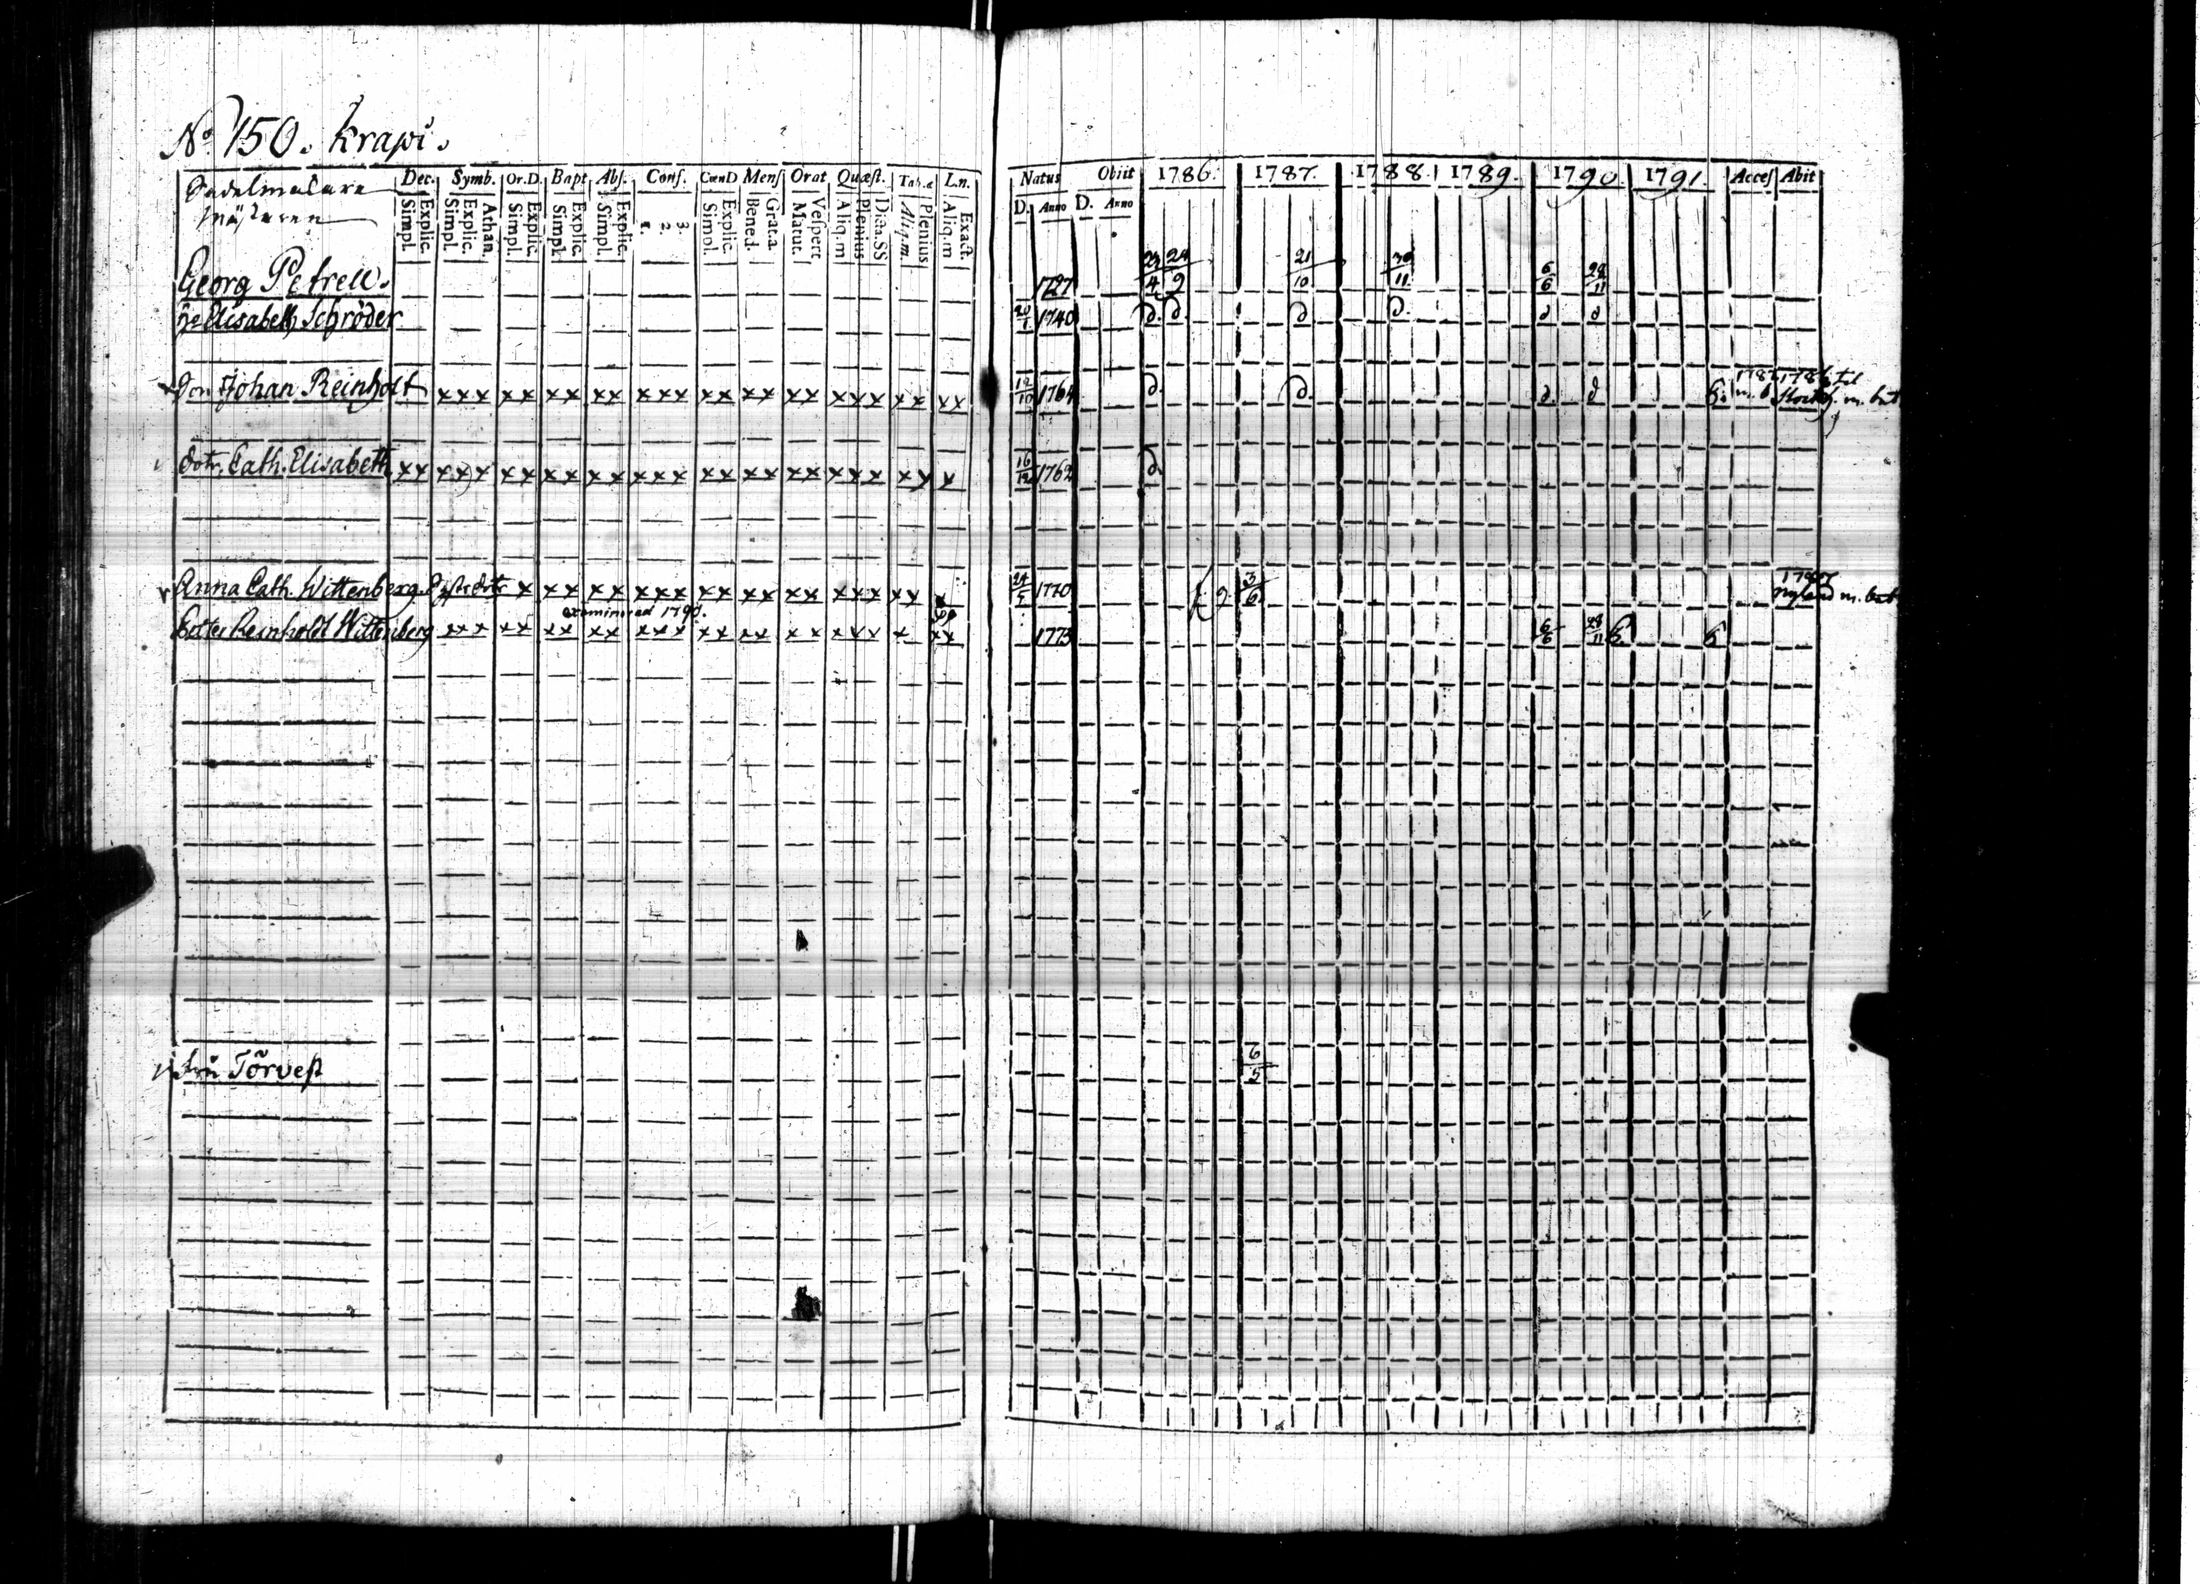 No 150. Krapi.
Sadelmakare
Mästaren
Dec. Symb. Or.D. Bapt Abſ. Conf. CœnD Menſ Orat Quæſt. Tab.æ Ln.
Simpl. Explic. Simpl. Explic. Athan. Simpl. Explic. Simpl. Explic. Simpl. Explic. 1. 2. 3. Simpl. Explic. Bened. Grat.a. Matut. Veſpert Aliq.m Plenius Dicta.SS Aliq.m Plenius Aliq.m Exact.
Natus Obiit 1786. 1787. 1788. 1789. 1790. 1791. Acceſ Abit
D. Anno D. Anno
Georg Petrell. 1727 23/4 24/9 21/10 30/11 6/6 28/11
h:o Elisabeth Schröder 1740 d. d d d. d d
Son Johan Reinholt x x x x x x x x x x x x x x x x x x x x x x x x 1764 d. d. d. d
dotr. Cath. Elisabeth x x x x x x x x x x x x x x x x x x x x x x x x x 16/12 1762 d.
Anna Cath. Wittenberg. x x x x x x x x x x x x x x x x x x x 24/5 1770 3/6 nyland m. bet
examinerad 1790.
Reinhold Wittenberg x x x x x x x x x x x x x x x x x x x x x x x x 1773 6/6 28/11
Fru Törvest 6/5